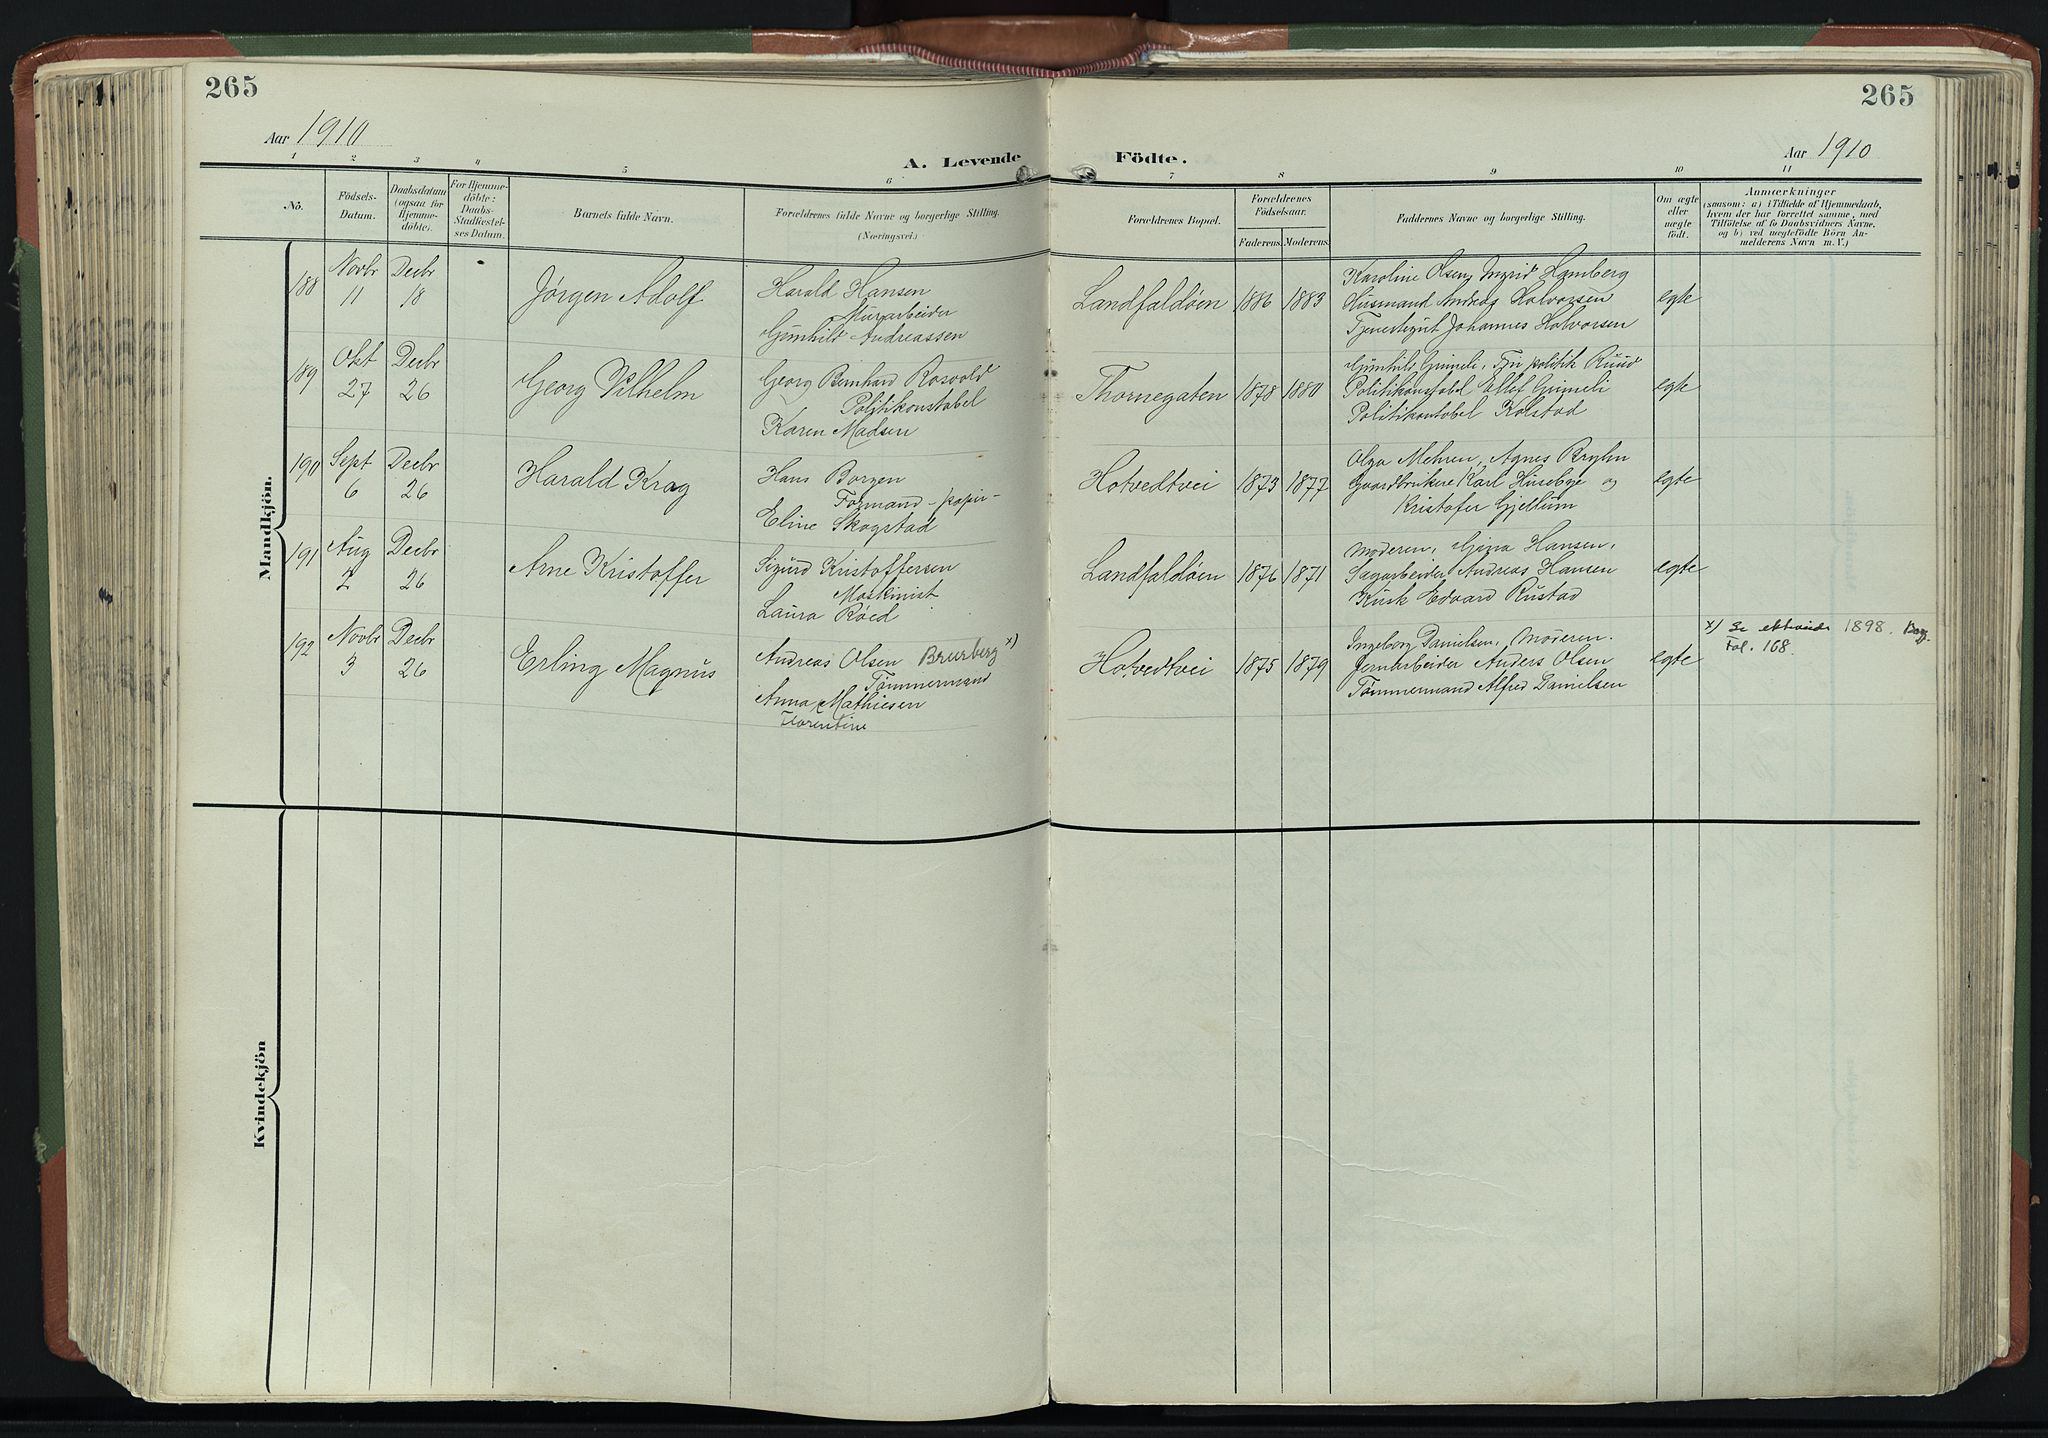 265
265
Aar 1910
A. Levende Födte.
Aar 1910
1 2 3 4 5 6 7 8 9 10 11
No.
Födsels-
Datum.
Daabsdatum
(ogsaa for
Hjemme-
döbte).
For Hjemme-
döbte:
Daabs-
Stadfæstel-
ses Datum.
Barnets fulde Navn.
Forældrenes fulde Navne og borgerlige Stilling.
(Næringsvei.)
Forældrenes Bopæl.
Forældrenes
Födselsaar.
Faderens. Moderens.
Faddernes Navne og borgerlige Stilling.
Om ægte
eller
uægte
født.
Anmærkninger
(saasom: a) i Tilfælde af Hjemmedaab,
hvem der har forrettet samme, med
Tilföielse af to Daabsvidners Navne,
og b) ved uægtefödte Börn An-
melderens Navn m. V.)
Mandkjön.
188
Novbr
11
Decbr
18
Jørgen Adolf
Harald Hansen
Murarbeider
Gunhild Andreassen
Landfaldøen
1886 1883
Karoline Olsen, Ingrid Hamberg
Husmand Andreas Halvorsen
Tjenestegut Johannes Halvorsen
egte
189
Okt
27
Decbr
26
Georg Vilhelm
Georg Bernhard Rosvold
Politikonstabel
Karen Madsen
Thornegaten
1878 1880
Gunhild Grimeli, politik Ruud
Politikonstabel Ellef Grimeli
Politikontabel Kolstad
egte
190
Sept
6
Decbr
26
Harald Krag
Hans Borgen
Formand - papir-
Eline Skogstad
Hotvedtvei
1873 1877
Olga Mehren, Agnes Bryhn
Gaardbrukere Karl Huseby og
Kristofer Gjellum
egte
191
Aug
2
Decbr
26
Arne Kristoffer
Sigurd Kristoffersen
Maskinist
Laura Røed
Landfaldøen
1876 1871
Moderen, Gina Hansen,
Sagarbeider Andreas Hansen
Kusk Edvard Rustad
egte
192
Novbr
3
Decbr
26
Erling Magnus
Andreas Olsen Brurberg x)
Tømmermand
Anna x Mathiesen
Florentine
Hotvedtvei
1875 1879
Ingeborg Danielsen, Moderen.
Jernarbeider Anders Olsen
Tømmermand Alfred Danielsen
egte
x) Se ektevidde 1898. Brag.
Fol. 168.
Kvindekjön